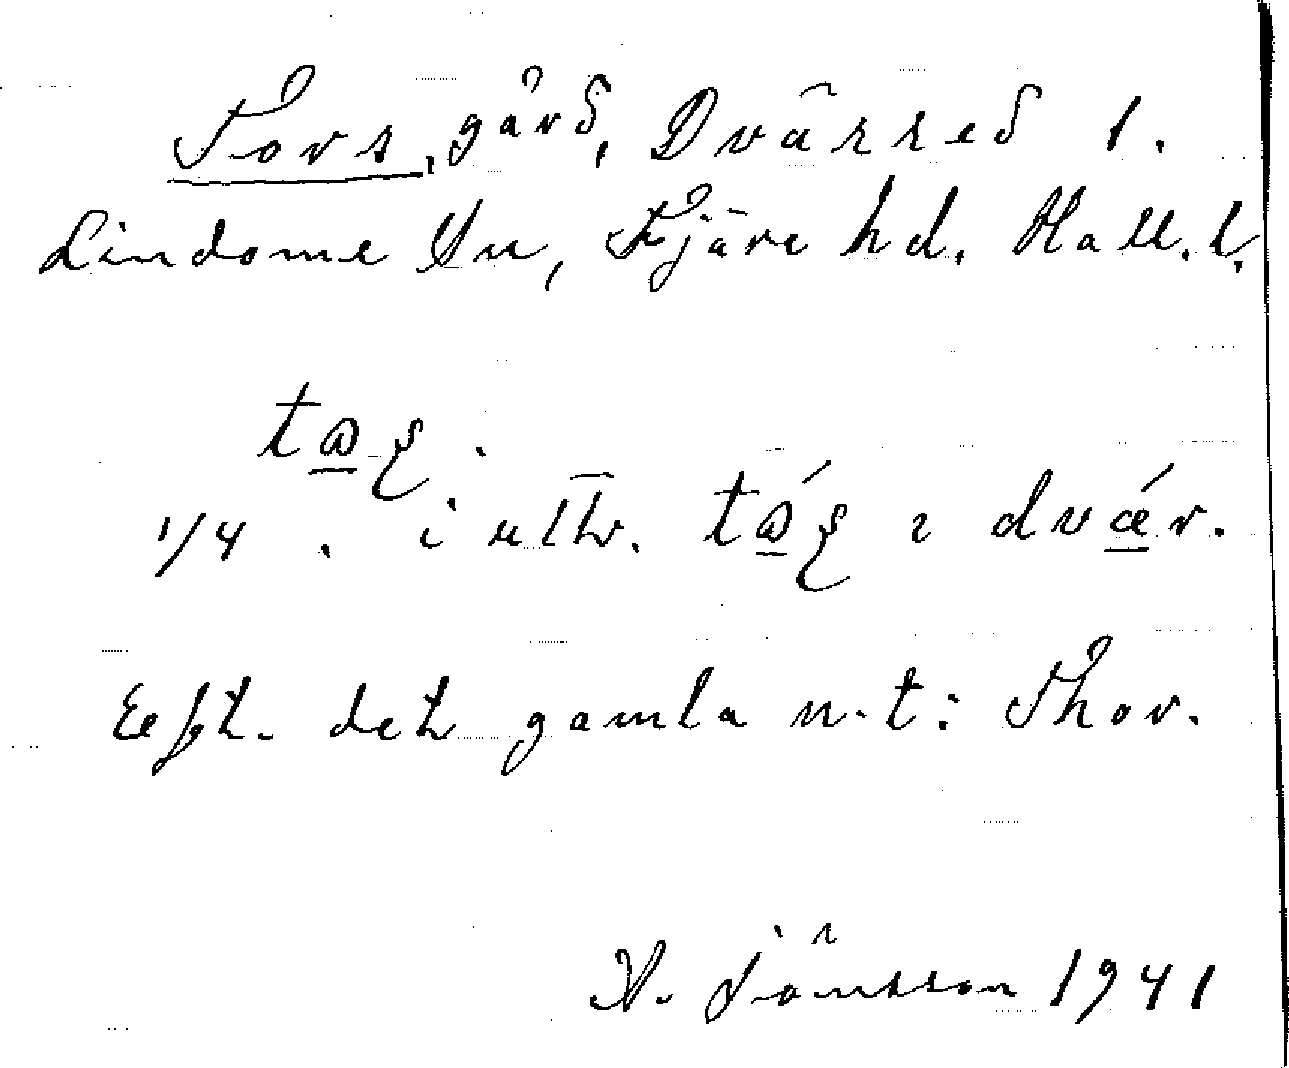 Tors, gård, Dvärred 1.
Lindome Sn, Fjäre hd. Hall. l.
1/4 . i uttr.
Eft. det gamla n. t: Thor.
Jönsson 1941